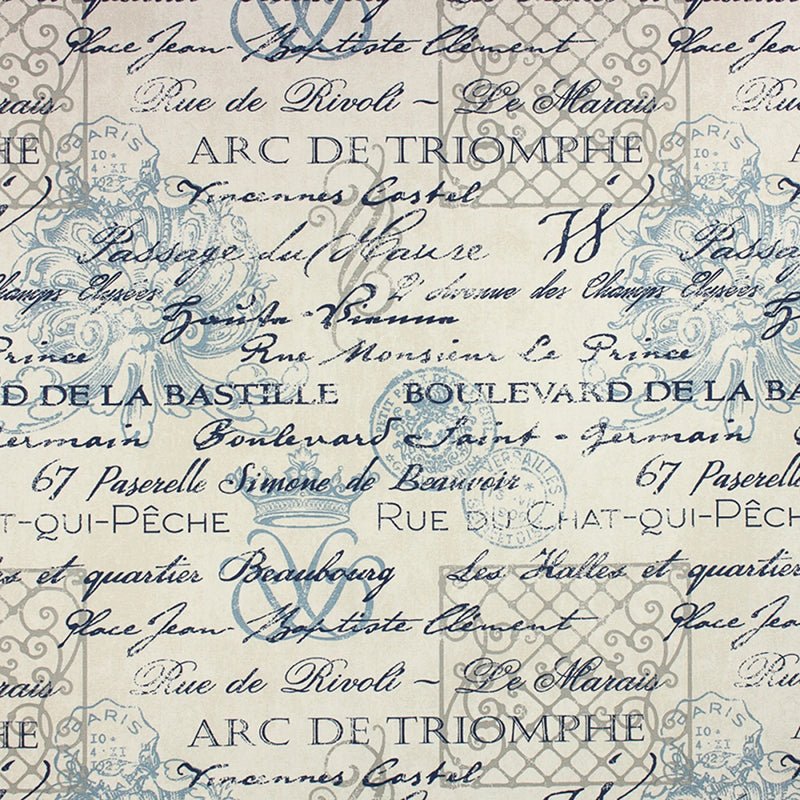 Les Halles et quartier Beaubourg
Place Jean-Baptiste Clément Place Jea
Rue de Rivoli ~ Le Marais Ru
arais
PARIS PARIS
HE ARC DE TRIOMPHE A
10 4 XI 192 10 4 XI 192
Vincennes Castel
Passage du Havre 78 Passag
Champs Elysées L'Avenue des Champs Elysées
Haute-Vienne H
Prince Rue Monsieur Le Prince
D DE LA BASTILLE BOULEVARD DE LA BA
Germain Boulevard Saint-Germain Bo
67 Paserelle Simone de Beauvoir 67 Paserelle
VERSAILLES
T-QUI-PÊCHE RUE DU CHAT-QUI-PÊCH
s et quartier Beaubourg Les Halles et quartier
Place Jean-Baptiste Clément Place Jea
arais Rue de Rivoli ~ Le Marais Ru
PARIS PARIS
HE ARC DE TRIOMPHE A
10 4 XI 192 10 4 XI 192
Vincennes Castel